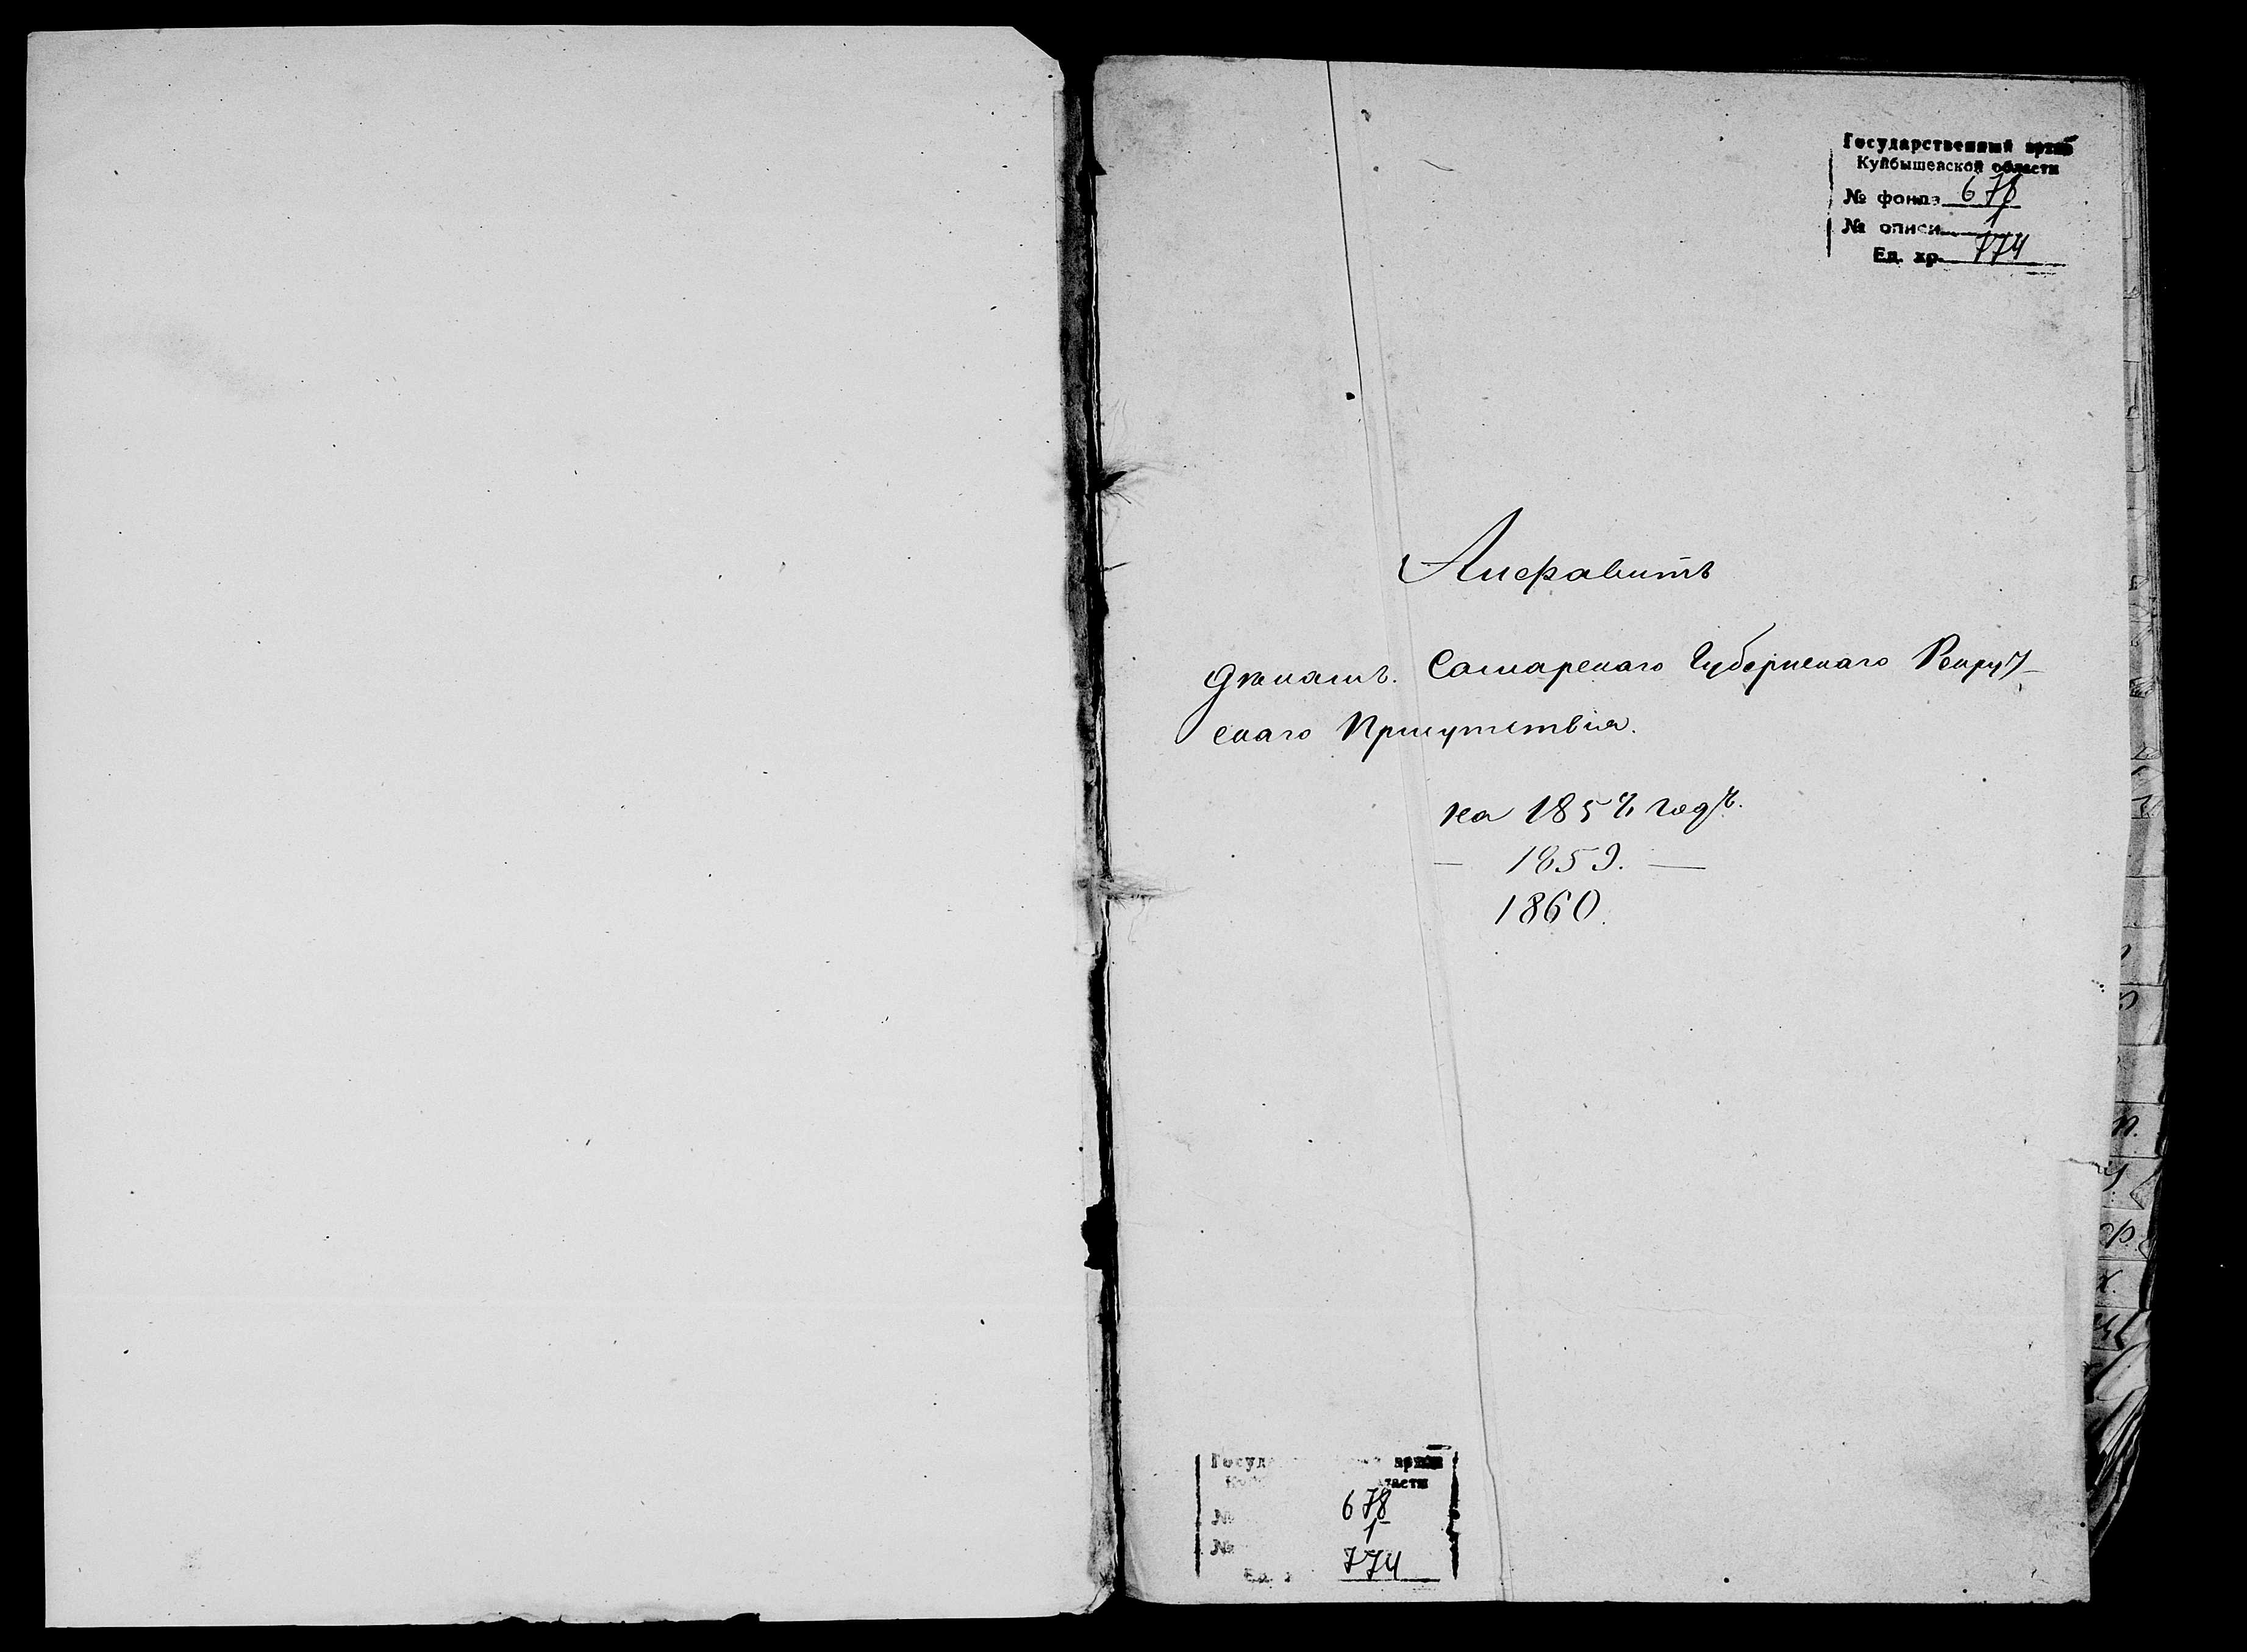 Государственный архив
Куйбышевской области
№ фонда 678
№ описи 1
Ед. хр. 774
Алфавитъ
дѣламъ. Самарскаго Губернскаго Рекрут-
скаго Присутствія.
на 1857 годъ.
— 1859. —
1860.
архив
678
№ 1
№
774
П.
У.
Ф.
Х.